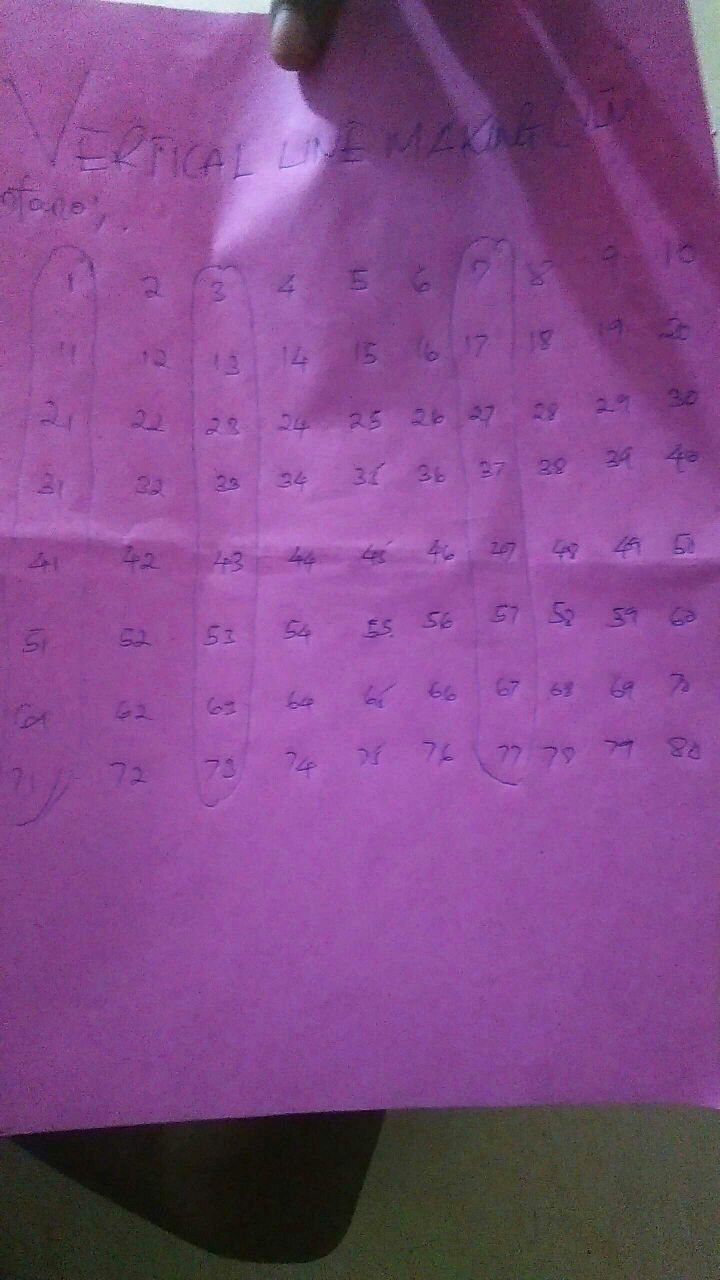 VERTICAL LINE MAKING
1 2 3 4 5 6 7 8 9 10
11 12 13 14 15 16 17 18 19 20
21 22 23 24 25 26 27 28 29 30
31 32 33 34 35 36 37 38 39 40
41 42 43 44 45 46 47 48 49 50
51 52 53 54 55 56 57 58 59 60
61 62 63 64 65 66 67 68 69 70
71 72 73 74 75 76 77 78 79 80